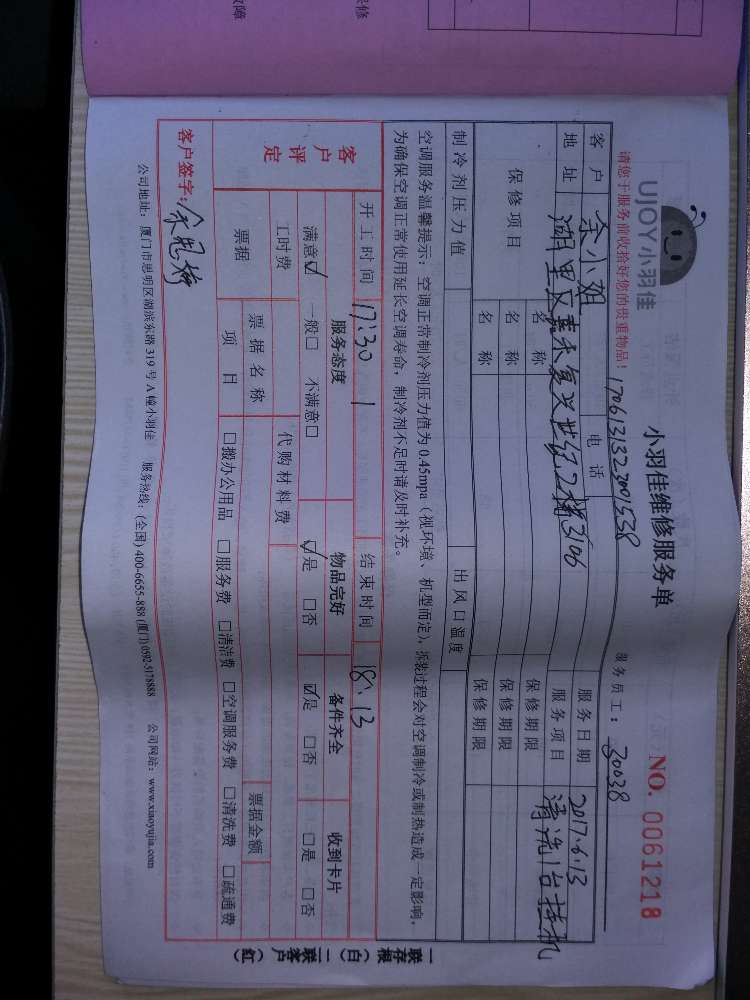 保修
故障
UJOY小羽佳
小羽佳维修服务单
NO. 0061218
请您于服务前收拾好您的贵重物品!
服务员工: 30038
客户 余小姐 电话 服务日期 2017.6.13
地址 湖里区嘉禾复兴世纪2楼3106 服务项目 清洗1台挂机
保修项目 名称 保修期限
名称 保修期限
名称 保修期限
制冷剂压力值 出风口温度
空调服务温馨提示:空调正常制冷剂压力值为0.45mpa(视环境、机型而定),拆装过程会对空调制冷或制热造成一定影响,
为确保空调正常使用延长空调寿命,制冷剂不足时请及时补充。
开工时间 17:30 结束时间 18:13
客户评定 服务态度 物品完好 备件齐全 收到卡片
满意☑ 一般□ 不满意□ ☑是 □否 ☑是 □否 □是 □否
工时费 代购材料费
票据 票据名称 票据金额
项目 □搬办公用品 □服务费 □清洁费 □空调服务费 □清洗费 □疏通费
客户签字:
公司地址:厦门市思明区湖滨东路319号A幢小羽佳 服务热线:(全国) 400-6655-888 (厦门) 0592-5178888 公司网站:www.xiaoyujia.com
一联存根(白)二联客户(红)